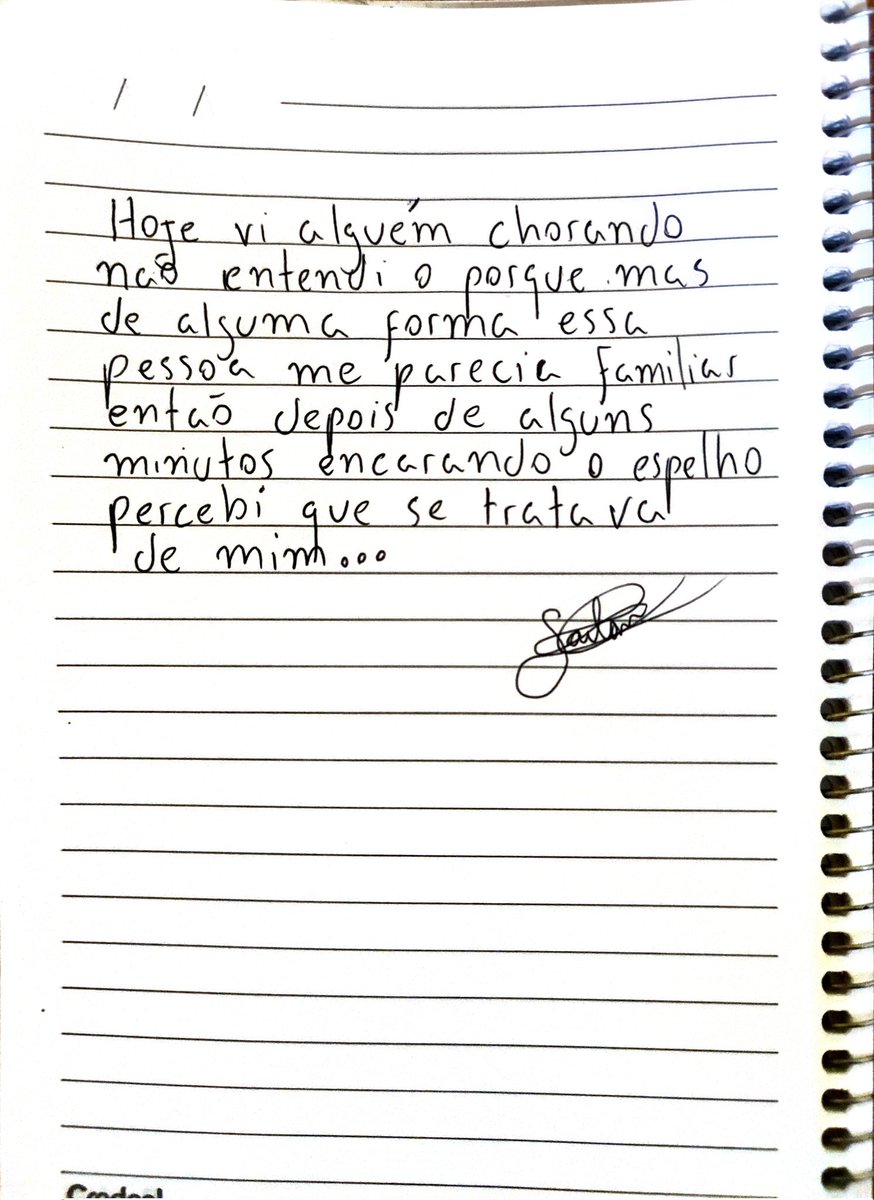 / /
Hoje vi alguém chorando
não entendi o porque mas
de alguma forma essa
pessoa me parecia familiar
então depois de alguns
minutos encarando o espelho
percebi que se tratava
de mim...